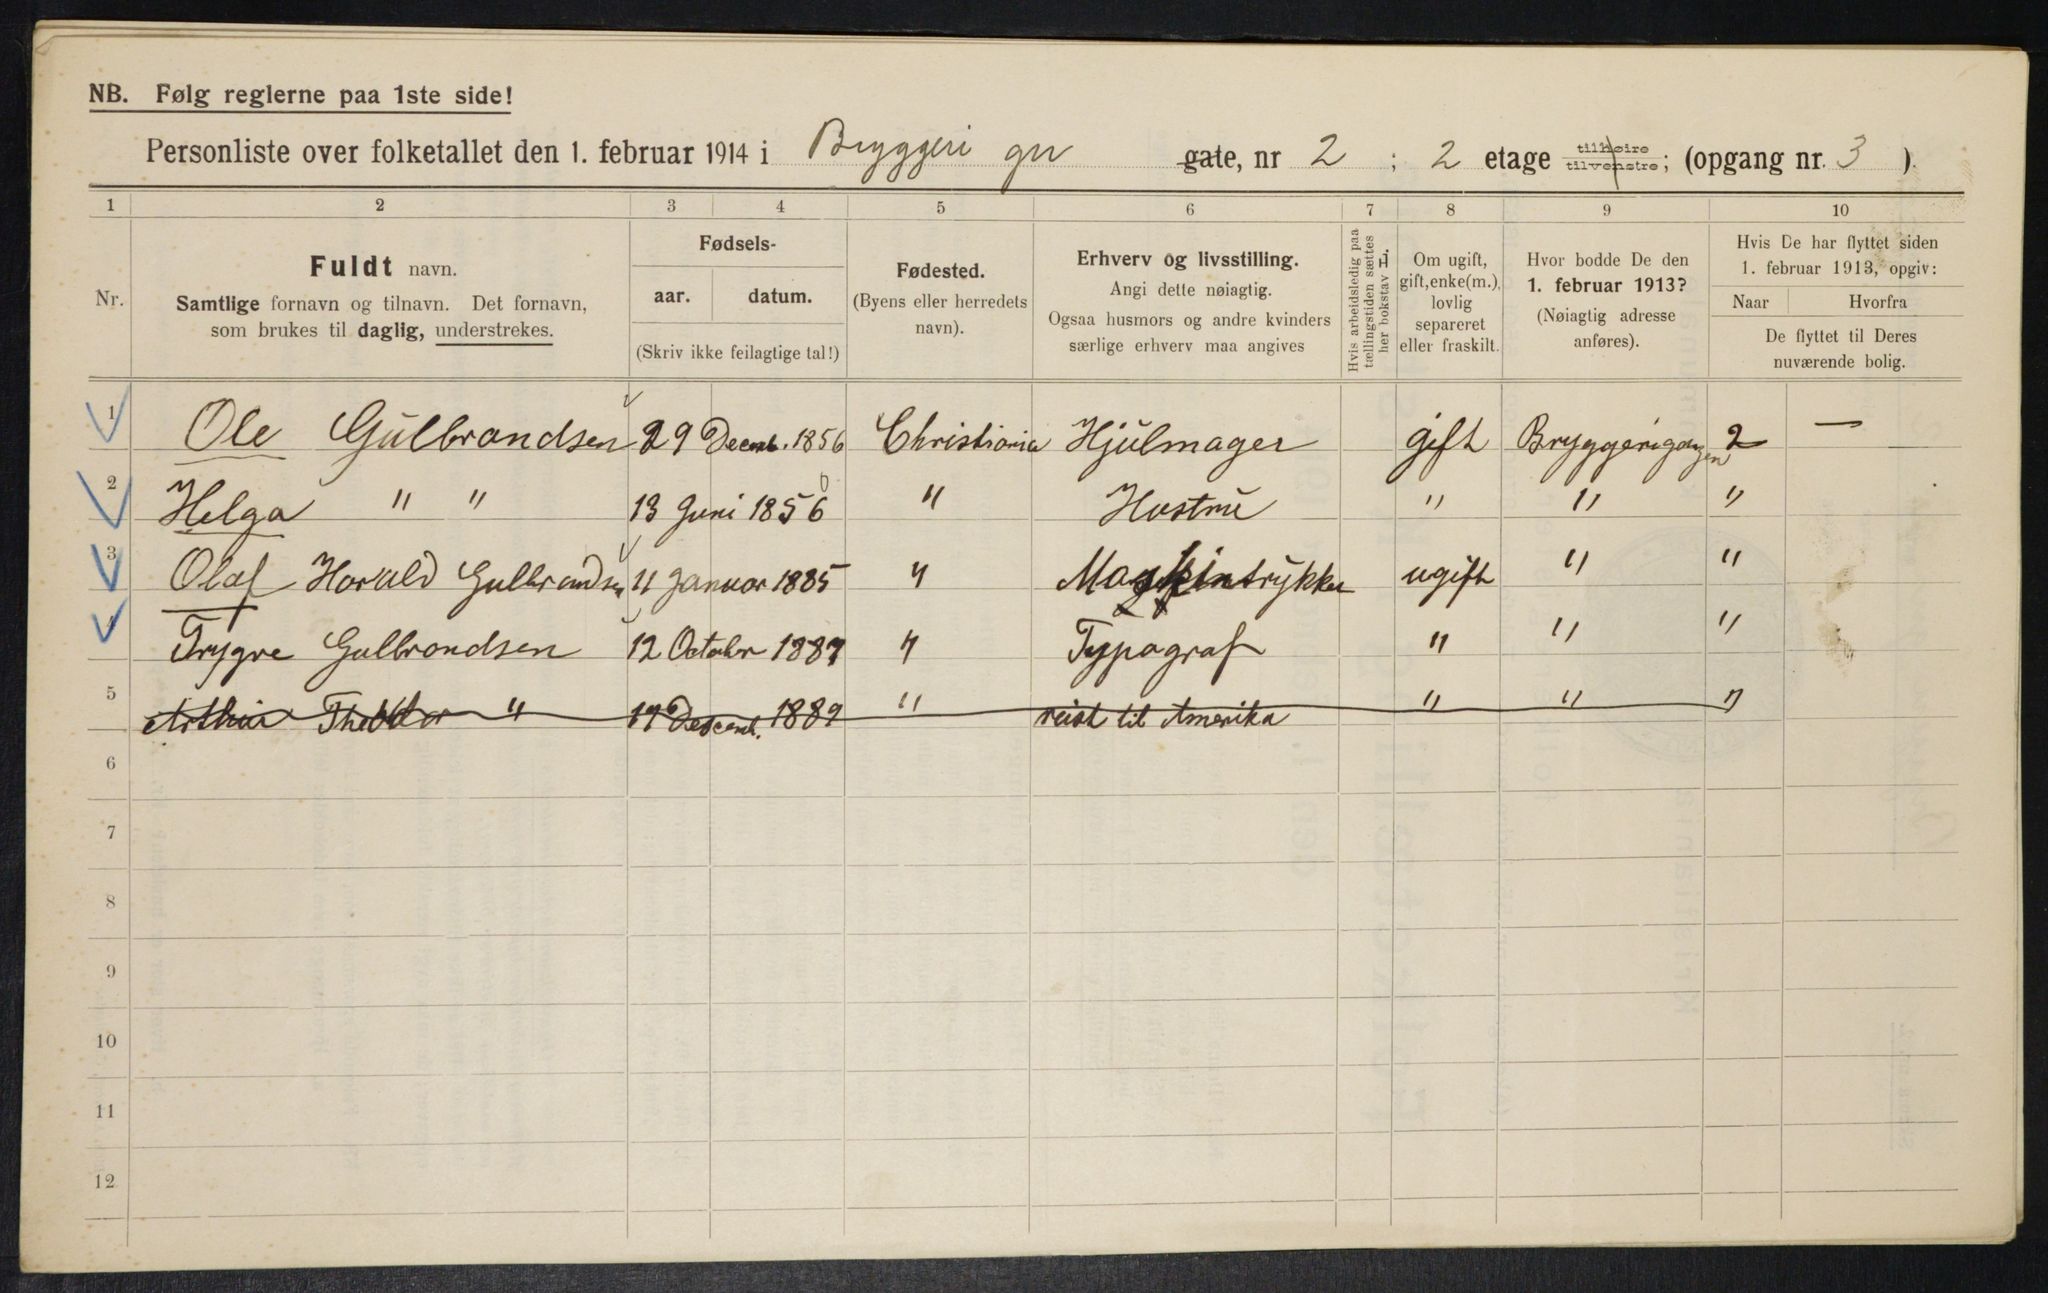 NB. Følg reglerne paa 1ste side!
Personliste over folketallet den 1. februar 1914 i Bryggeri gn gate, nr 2 ; 2 etage tilhøire tilvenstre; (opgang nr. 3 ).
1 2 3 4 5 6 7 8 9 10
Nr.
Fuldt navn.
Samtlige fornavn og tilnavn. Det fornavn,
som brukes til daglig, understrekes.
Fødsels-
aar. datum.
(Skriv ikke feilagtige tal!)
Fødested.
(Byens eller herredets
navn).
Erhverv og livsstilling.
Angi dette nøiagtig.
Ogsaa husmors og andre kvinders
særlige erhverv maa angives
Hvis arbeidsledig paa
tællingstiden sættes
her bokstav L.
Om ugift,
gift, enke(m.),
lovlig
separeret
eller fraskilt.
Hvor bodde De den
1. februar 1913?
(Nøiagtig adresse
anføres).
Hvis De har flyttet siden
1. februar 1913, opgiv:
Naar Hvorfra
De flyttet til Deres
nuværende bolig.
1 Ole Gulbrandsen 29 Decemb. 1856 Christiania Hjulmager gift Bryggerigangen 2 —
2 Helga " " 13 Juni 1856 " Hustru " " "
3 Olaf Harald Gulbrandsen 11 Januar 1885 " Maskintrykker ugift " "
4 Trygve Gulbrandsen 12 October 1887 " Typograf " " "
5 Arthur " 17 Decemb. 1889 " reist til Amerika " " "
6
7
8
9
10
11
12